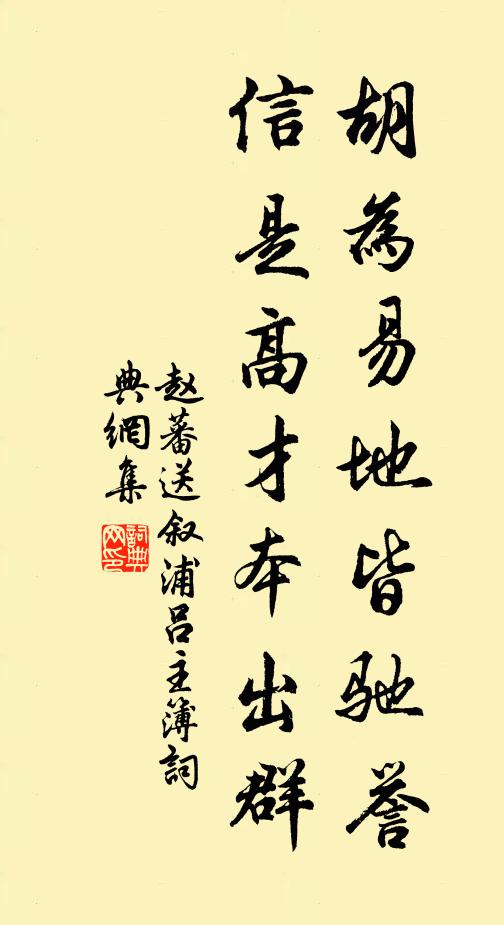 胡為易地皆驰誉
信是高才本出群
赵蕃送叙浦吕主簿詞
典網集
詞典网印